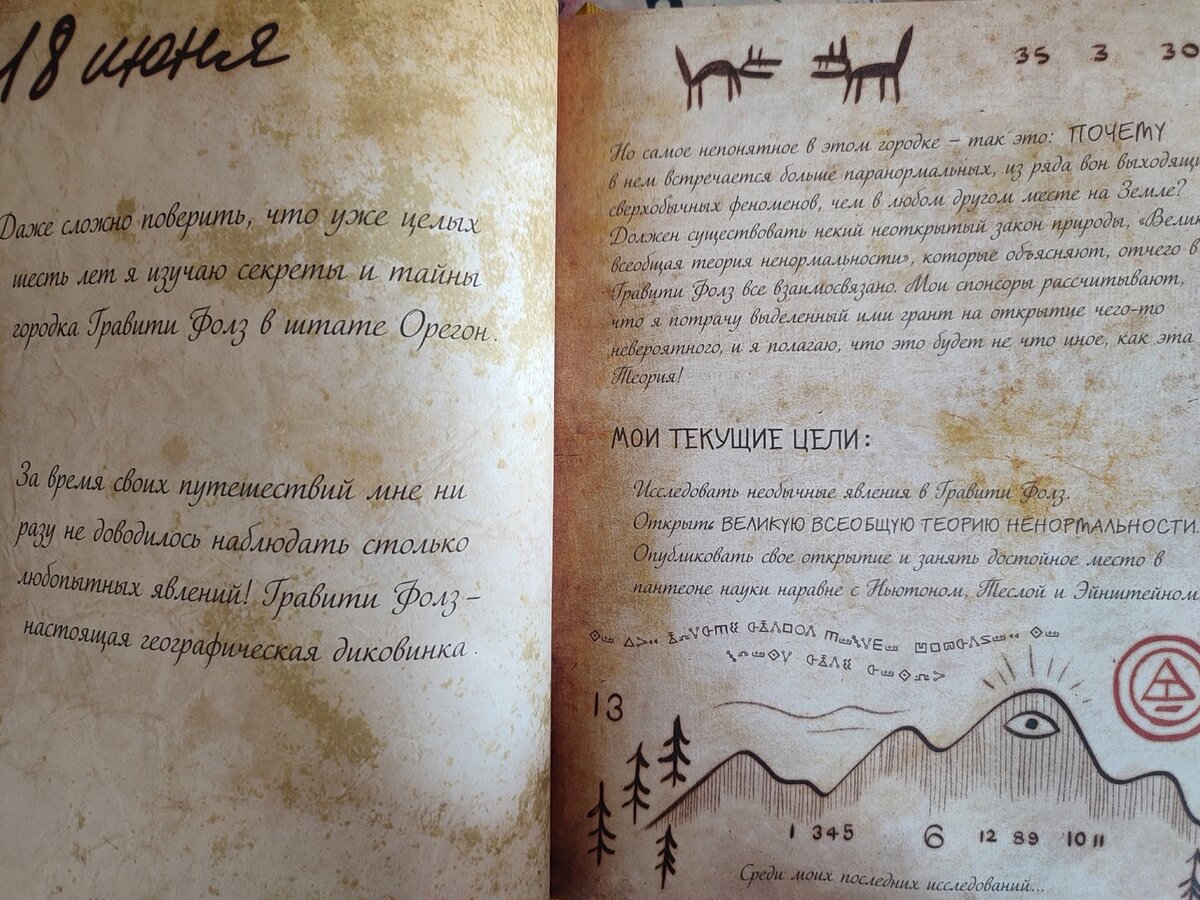 18 июня
Даже сложно поверить, что уже целых
шесть лет я изучаю секреты и тайны
городка Гравити Фолз в штате Орегон.
За время своих путешествий мне ни
разу не доводилось наблюдать столько
любопытных явлений! Гравити Фолз –
настоящая географическая диковинка.
35 3 30
Но самое непонятное в этом городке – так это: ПОЧЕМУ
в нем встречается больше паранормальных, из ряда вон выходящи
сверхобычных феноменов, чем в любом другом месте на Земле?
Должен существовать некий неоткрытый закон природы, «Велик
всеобщая теория ненормальности», которые объясняют, отчего в
Гравити Фолз все взаимосвязано. Мои спонсоры рассчитывают,
что я потрачу выделенный ими грант на открытие чего-то
невероятного, и я полагаю, что это будет не что иное, как эта
Теория!
МОИ ТЕКУЩИЕ ЦЕЛИ:
Исследовать необычные явления в Гравити Фолз.
Открыть ВЕЛИКУЮ ВСЕОБЩУЮ ТЕОРИЮ НЕНОРМАЛЬНОСТИ.
Опубликовать свое открытие и занять достойное место в
пантеоне науки наравне с Ньютоном, Теслой и Эйнштейном.
13
1 345 6 12 89 10 11
Среди моих последних исследований...